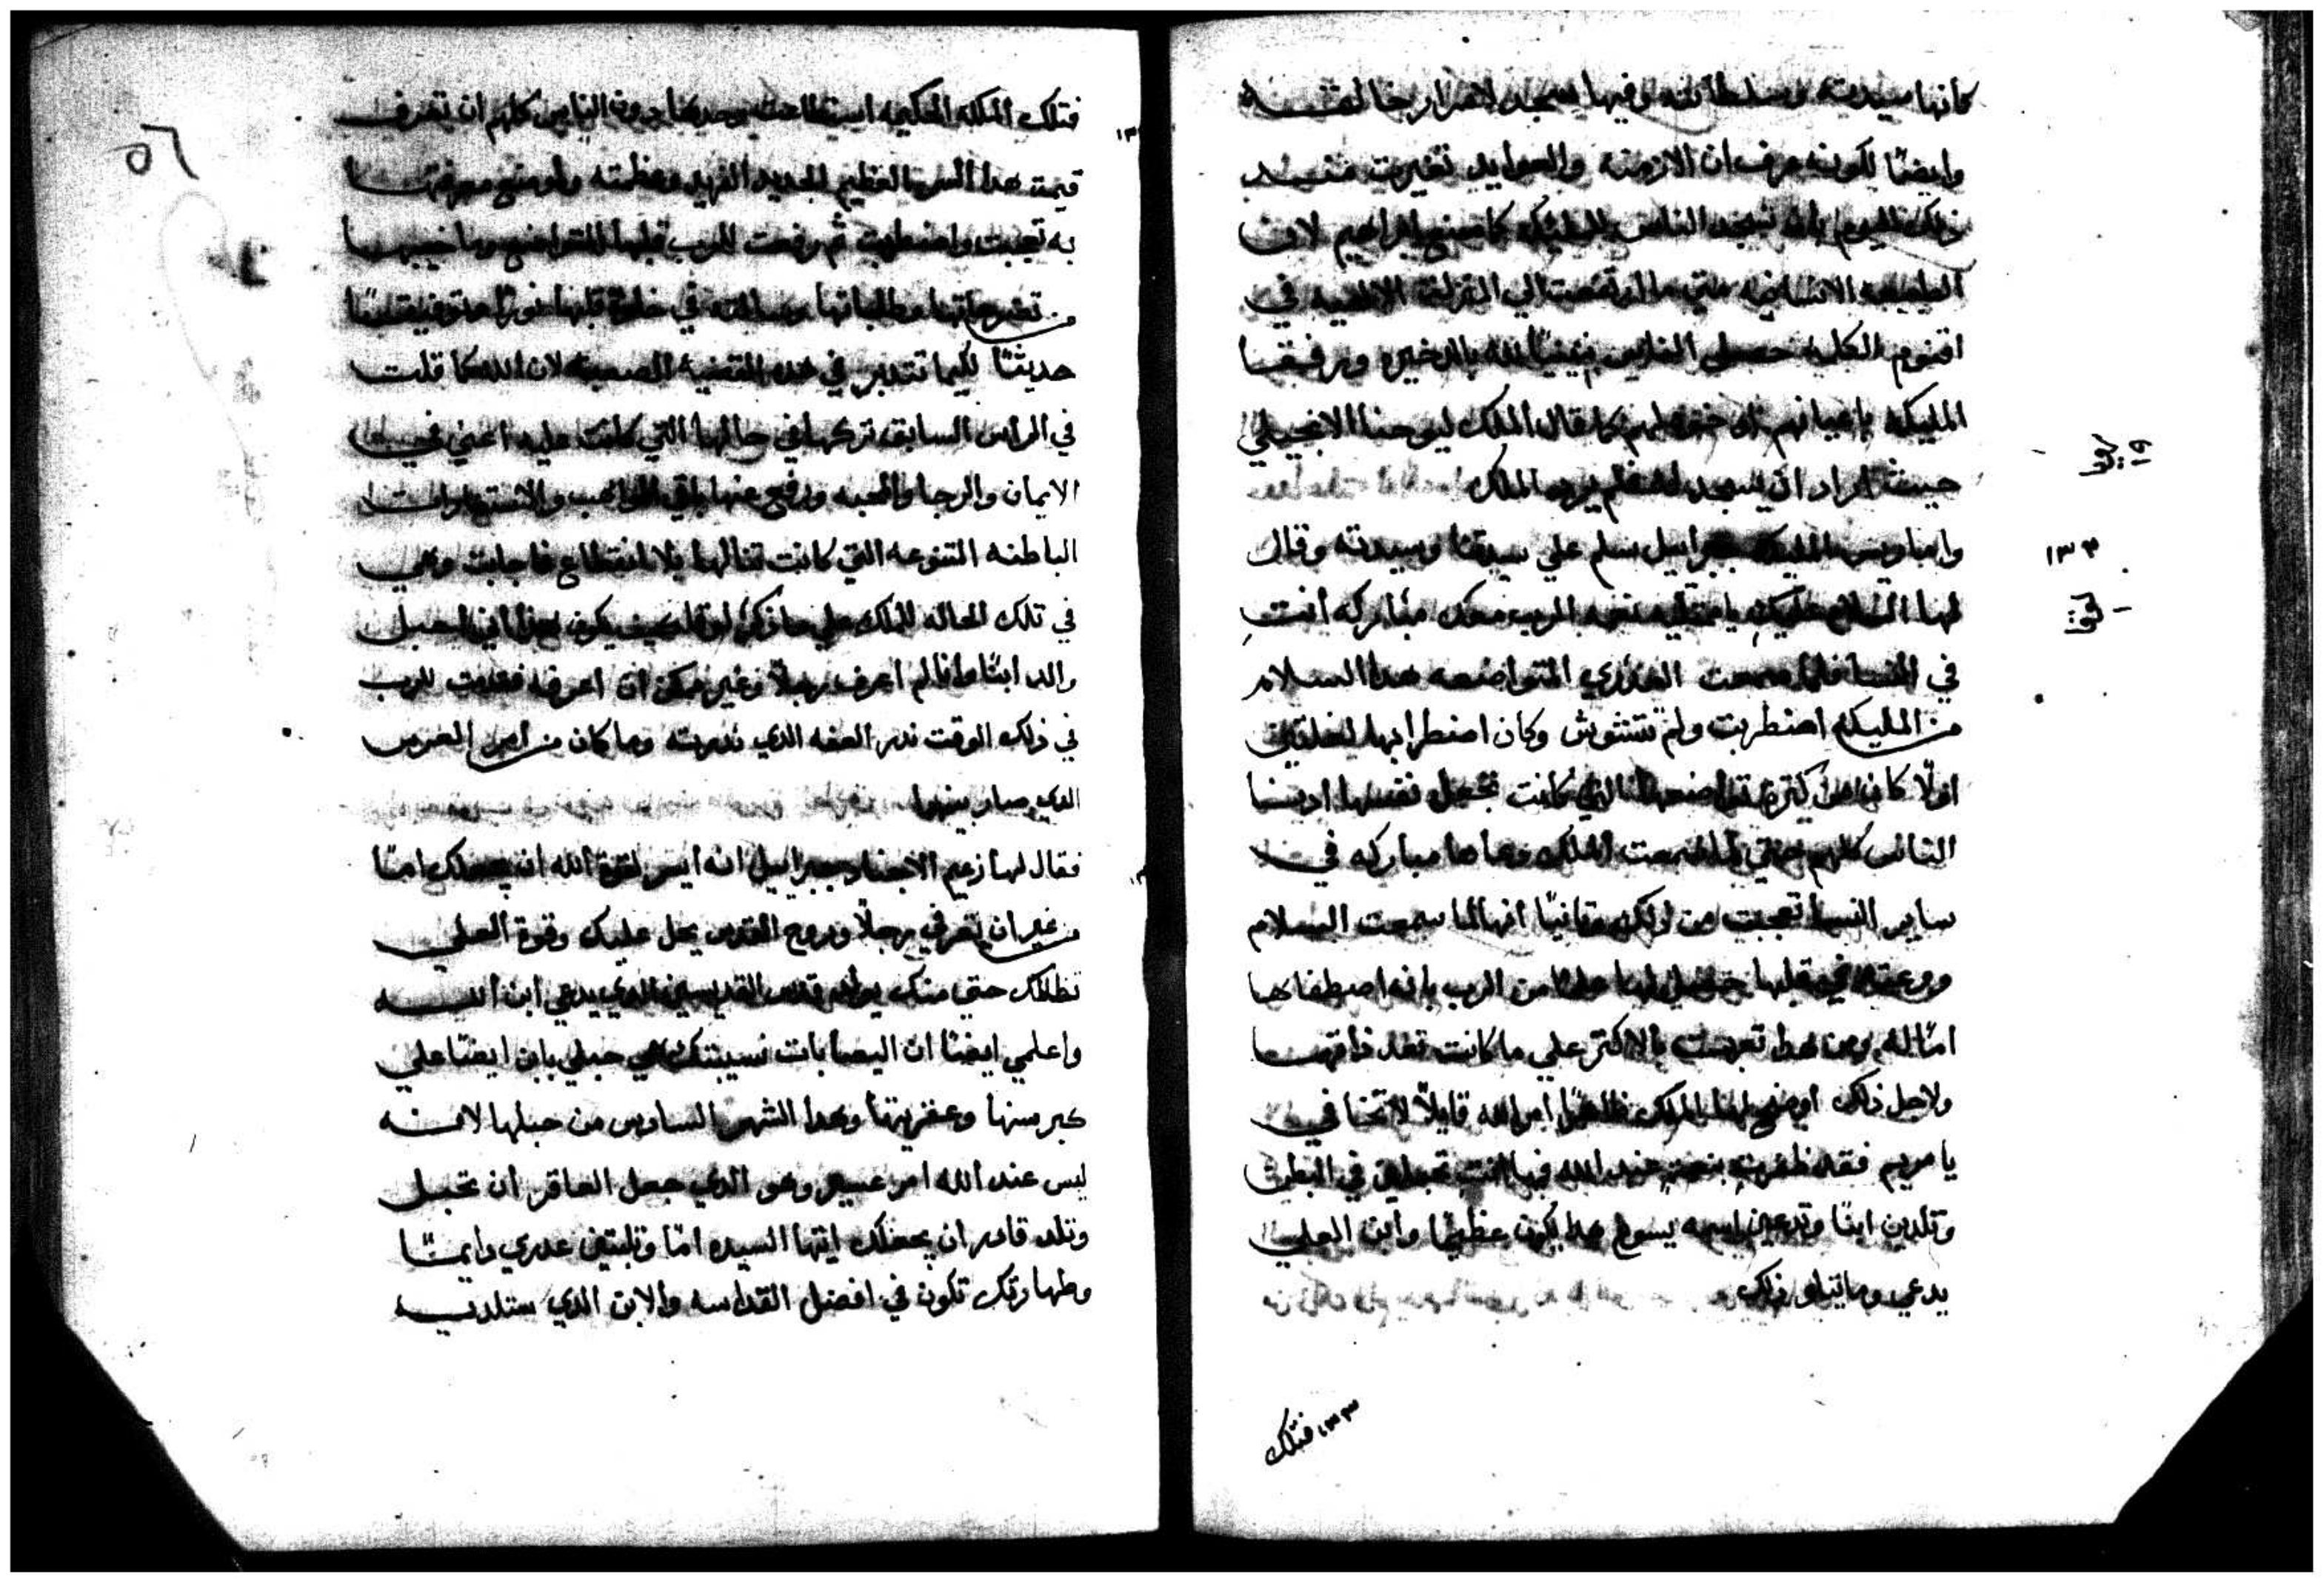 كانها سيدته وسلطانته وفيها سجد لاسرار خالقه
وايضًا لكونه عرف ان الازمنه والعوايد تغيرت منذ
ذلك اليوم بان تسجد الناس للمليكه كما صنع ابراهيم لان
الطبيعه الانسانيه متي ما ارتفعت الي المنزلة الالهيه في
اقنوم الكلمه حصلوا الناس بنينًا لله بالذخيره ورفقا
المليكه باعيانهم او خوتهم كما قال الملك ليوحنا الانجيلي
حيث اراد ان يسجد له فلم يرد الملك
واما ريس المليكه جبراييل سلم علي سيدتنا وسيدته وقال
لها السلام عليكي يا ممتليه نعمه الرب معك مباركه انتِ
في النسا فلما سمعت العذري المتواضعه هدا السلام
من المليكه اضطربت ولم تتشوش وكان اضطرابها لخلتين
اولًا كان من كثرة تواضعها التي كانت تجعل نفسها ادنا
الناس كلهم حتي لما سمعت الملك دعاها مباركه في
ساير النسا تعجبت من ذلك وثانيًا انها لما سمعت السلام
ووعته في قلبها حصل لها علمًا من الرب بانه اصطفاها
امًا له ومن هدا تعجبت بالاكثر علي ما كانت تعد ذاتها
ولاجل ذلك اوضح لها الملك ظاهرًا امر الله قايلًا لا تخافي
يا مريم فقد ظفرتِ بنعمةٍ عند الله فها انتِ تحبلين في البطن
وتلدين ابنًا وتدعين اسمه يسوع هدا يكون عظيمًا وابن العلي
يدعي وما يتلو ذلك
١٣٢
١٣٣ فتلك
فتلك الملكه الحكيمه استطاعت وحدها دون الناس كلهم ان تعرف
قيمة هدا السر العظيم الجديد الفريد وعظمته واوضع معرفتها
به تعجبت واضطربت ثم رفعت للرب قلبها المتواضع وما خيبها
من تضرعاتها وطلباتها وسالته في خلوة قلبها نورًا وتوفيقًا
حديثًا لكيما تتدبر في هده القضيه الصعبه لان الله كما قلت
في الراس السابق تركها في حالها التي كانت عليه اعني في
الايمان والرجا والمحبه ورفع عنها باقي المواهب والاستعارات
الباطنه المتنوعه التي كانت تنالها بلا انقطاع فاجابت وهي
في تلك الحاله للملك علي ما ذكر لوقا كيف يكون هذا اني احبل
والد ابنًا وانا لم اعرف رجلًا وغير ممكن ان اعرفه فقدمت للرب
في ذلك الوقت ندر العفه الدي ندرته وما كان من امر العرس
الدي صار بينهما
فقال لها زعيم الاجناد جبراييل انه ايسر لقوة الله ان يجعلك امًا
من غير ان تعرفي رجلًا وروح القدس يحل عليك وقوة العلي
تظللك حتي منك يولد قدس القديسين الدي يدعي ابن الله
واعلمي ايضًا ان اليصابات نسيبتك هي حبلي بابن ايضًا علي
كبر سنها وعقريتها وهدا الشهر السادس من حبلها لانه
ليس عند الله امر عسير وهو الدي جعل العاقر ان تحبل
وتلد قادر ان يجعلك ايتها السيده امًا وتلبثين عدري دايمًا
وطهارتك تكون في افضل القداسه والابن الدي ستلديه
٥٦